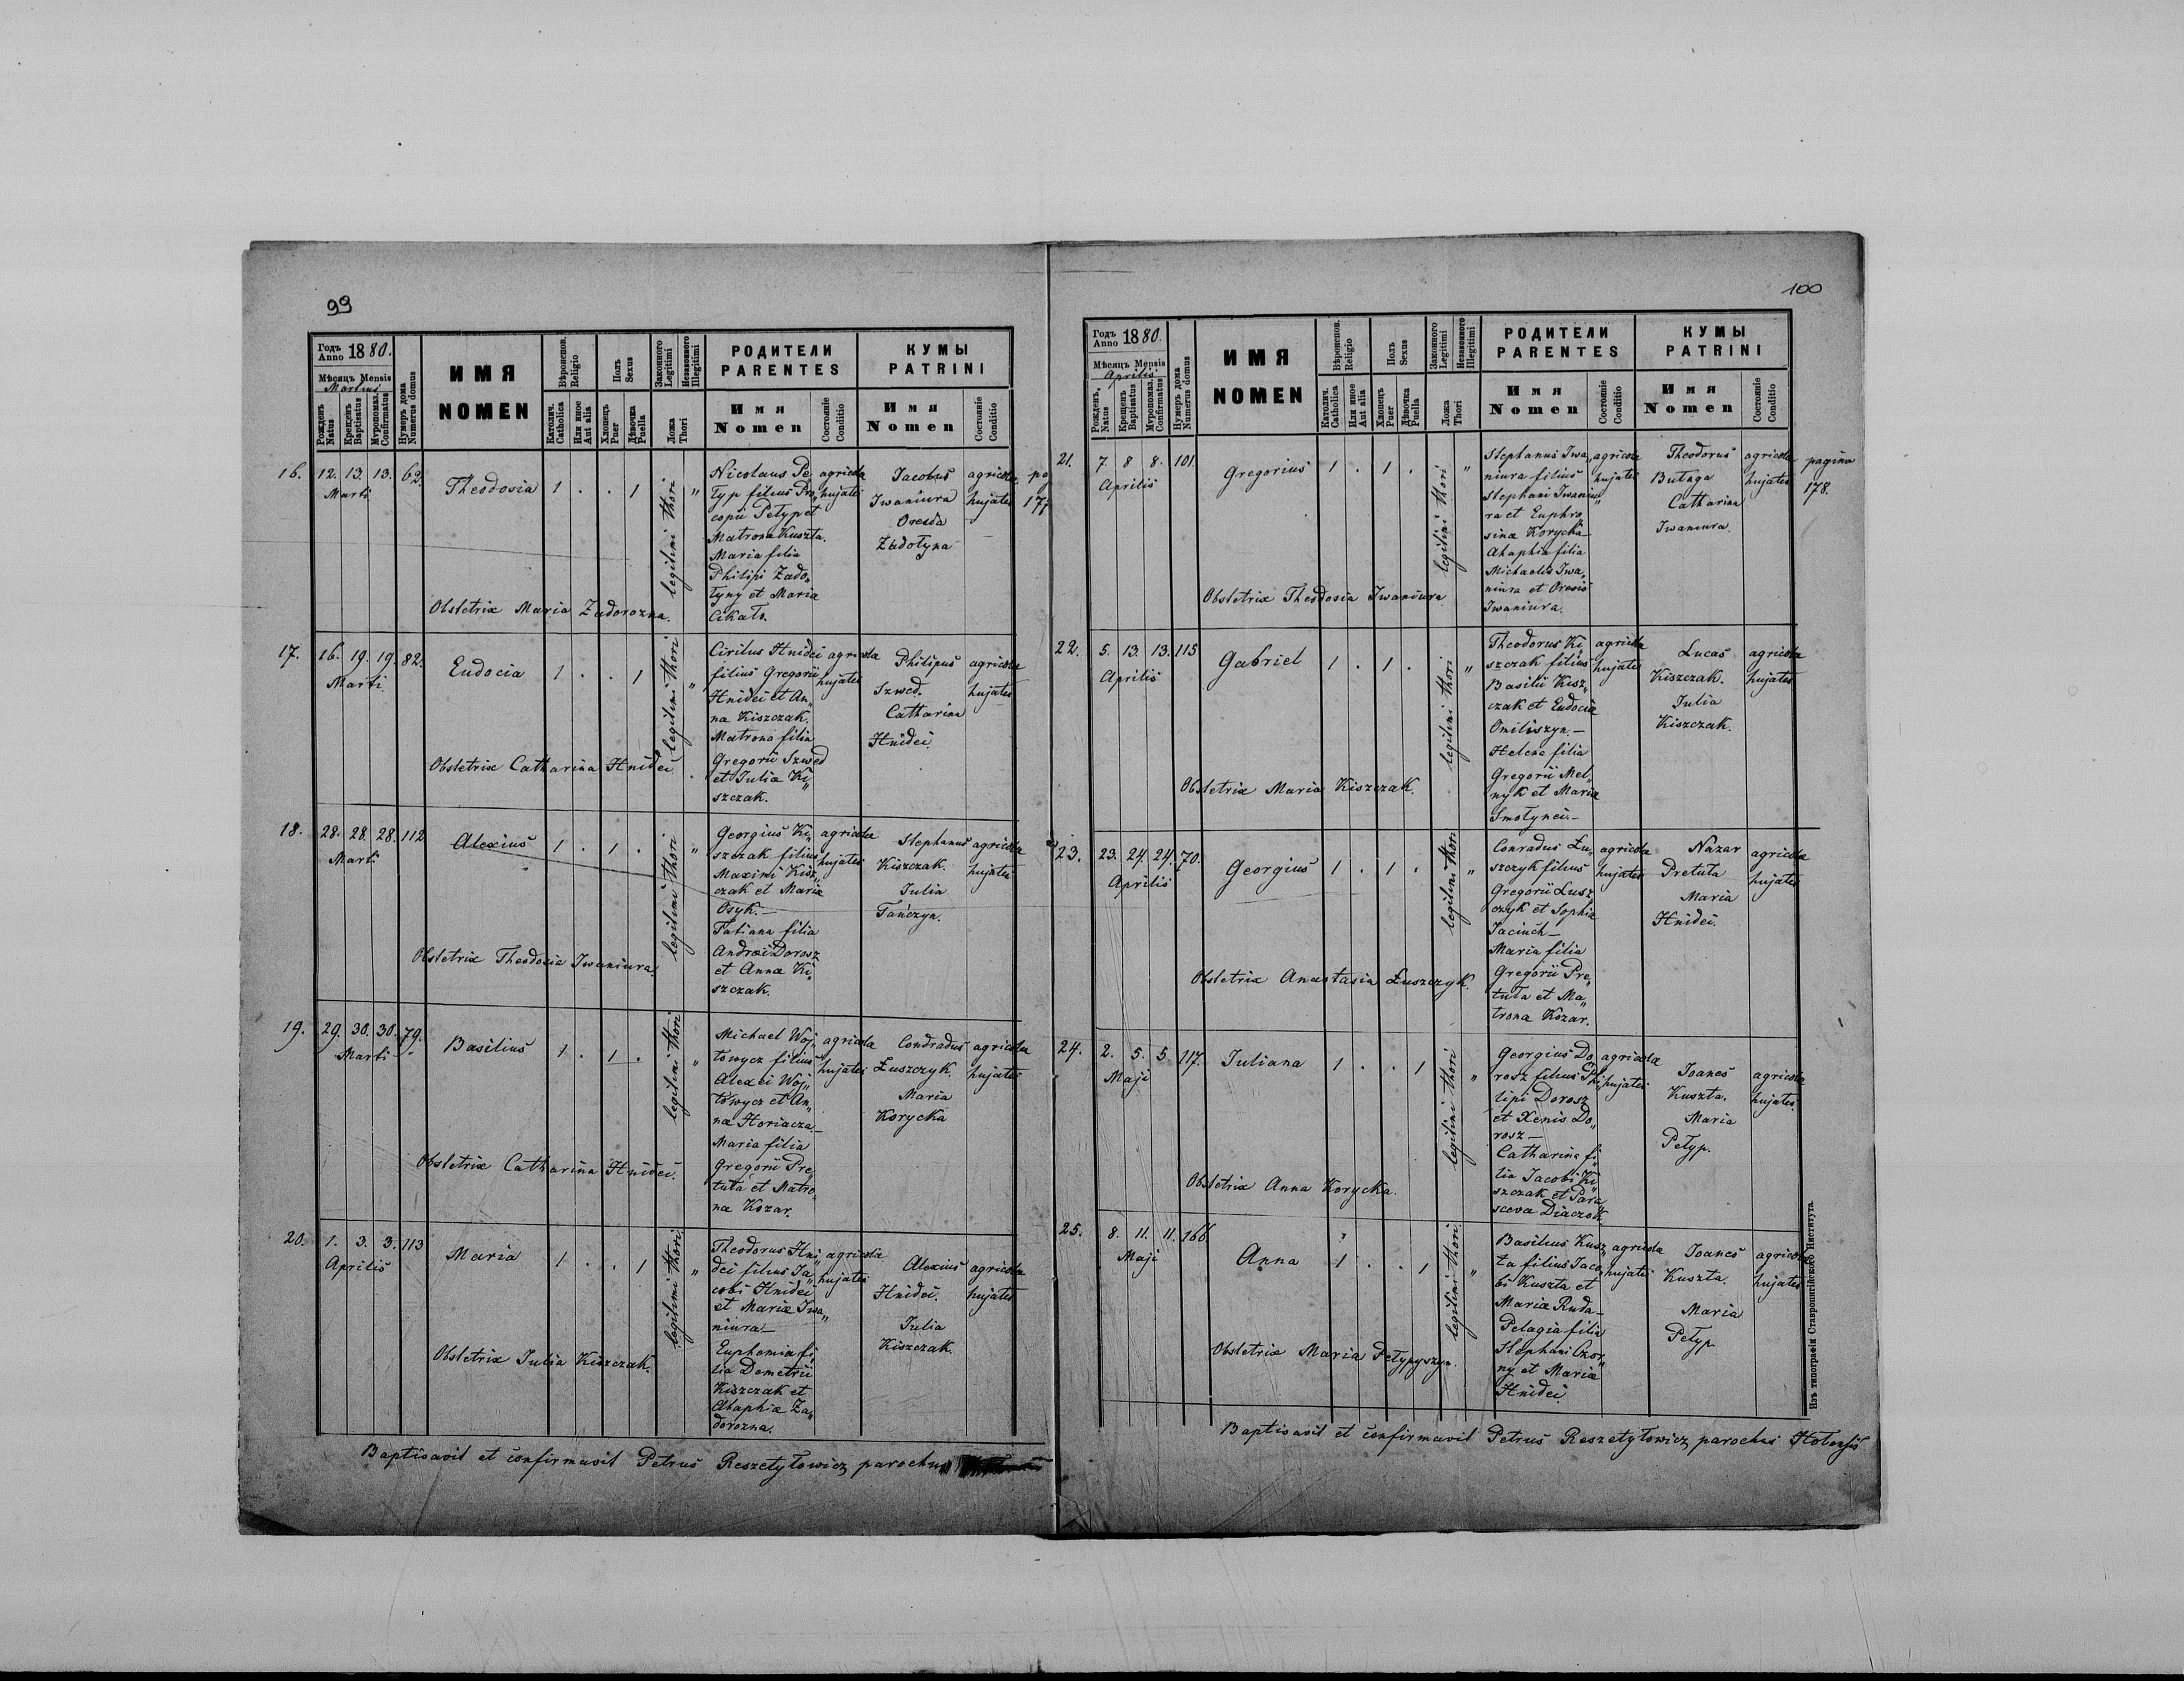 99
Годъ Anno 1880.
Мѣсяцъ Mensis
Martius
Рожденъ Natus
Крещенъ Baptisatus
Мѵропомаз. Confirmatus
Нумеръ дома Numerus domus
ИМЯ
NOMEN
Вѣроисповѣд. Religio
Католич. Catholica
Или иное Aut alia
Полъ Sexus
Хлопецъ Puer
Дѣвочка Puella
Законного Legitimi
Незаконного Illegitimi
Ложа Thori
РОДИТЕЛИ
PARENTES
Имя Nomen
Состояніе Conditio
КУМЫ
PATRINI
Имя Nomen
Состояніе Conditio
16. 12. 13. 13. 62.
Marti
Theodosia 1 . . 1
legitimi thori "
Nicolaus Pe
typ filius Pro„
copii Petyp et
Matrona Kuszta.
Maria filia
Philipi Zado„
tyny et Maria
Cikało.
agricola
hujates
Jacobus
Iwaniura
Oresia
Zadotyna
agricola
hujates
pa
177
Obstetrix Maria Zadorozna.
17. 16. 19. 19. 82.
Marti
Eudocia 1 . . 1
legitimi thori "
Cirilus Hnidei
filius Gregorii
Hnidei et An„
na Kiszczak.
Matrona filia
Gregorii Szwed
et Julia Ki„
szczak.
agricola
hujates
Philipus
Szwed.
Catharina
Hnidei.
agricola
hujates
Obstetrix Catharina Hnidei
18. 28. 28. 28. 112
Marti
Alexius 1 . 1 .
legitimi thori "
Georgius Ki„
szczak filius
Maximi Kisz„
czak et Maria
Osyk.—
Tatiana filia
Andrei Dorosz
et Anna Ki„
szczak.
agricola
hujates
Stephanus
Kiszczak.
Julia
Tańczyn.
agricola
hujates
Obstetrix Theodosia Iwaniura.
19. 29. 30. 30. 79.
Marti
Basilius 1 . 1 .
legitimi thori "
Michael Woj„
towycz filius
Alexei Woj„
towycz et An„
na Horiacza.—
Maria filia
Gregorii Pre„
tuła et Matro„
na Kozar.
agricola
hujates
Condradus
Łuszczyk.
Maria
Korycka
agricola
hujates
Obstetrix Catharina Hnidei.
20. 1. 3. 3. 113
Aprilis
Maria 1 . . 1
legitimi thori "
Theodorus Hni„
dei filius Ja„
cobi Hnidei
et Maria Iwa„
niura—
Euphemia fi„
lia Demetrii
Kiszczak et
Ahaphia Za„
dorozna.
agricola
hujates
Alexius
Hnidei.
Julia
Kiszczak.
agricola
hujates
Obstetrix Julia Kiszczak.
Baptisavit et confirmavit Petrus Reszetyłowicz parochus
100
Годъ Anno 1880.
Мѣсяцъ Mensis
Aprilis
Рожденъ Natus
Крещенъ Baptisatus
Мѵропомаз. Confirmatus
Нумеръ дома Numerus domus
ИМЯ
NOMEN
Вѣроисповѣд. Religio
Католич. Catholica
Или иное Aut alia
Полъ Sexus
Хлопецъ Puer
Дѣвочка Puella
Законного Legitimi
Незаконного Illegitimi
Ложа Thori
РОДИТЕЛИ
PARENTES
Имя Nomen
Состояніе Conditio
КУМЫ
PATRINI
Имя Nomen
Состояніе Conditio
21. 7. 8 8. 101.
Aprilis
Gregorius 1 . 1 .
legitimi thori "
Stephanus Iwa„
niura filius
Stephani Iwaniu„
ra et Euphro„
sina Korycka—
Ahaphia filia
Michaelis Iwa„
niura et Oresis
Iwaniura.
agricola
hujates
Theodorus
Butaga
Catharina
Iwaniura.
agricola
hujates
pagina
178.
Obstetrix Theodosia Iwaniura
22. 5. 13. 13. 115
Aprilis
Gabriel 1 . 1 .
legitimi thori "
Theodorus Ki„
szczak filius
Basilii Kisz„
czak et Eudocia
Omiliszyn.—
Helena filia
Gregorii Mel„
nyk et Maria
Smotynei.—
agricola
hujates
Lucas
Kiszczak.
Julia
Kiszczak.
agricola
hujates
Obstetrix Maria Kiszczak.
23. 23. 24. 24. 70.
Aprilis
Georgius 1 . 1 .
legitimi thori "
Conradus Łu„
szczyk filius
Gregorii Łusz„
czyk et Sophia
Jacinich—
Maria filia
Gregorii Pre„
tuła et Ma„
trona Kozar.
agricola
hujates
Nazar
Pretuła
Maria
Hnidei.
agricola
hujates
Obstetrix Anastasia Łuszczyk.
24. 2. 5. 5. 117.
Maji
Juliana 1 . . 1
legitimi thori "
Georgius Do„
rosz filius Phi„
lipi Dorosz
et Xenis Do„
rosz—
Catharina fi„
lia Jacobi Ki„
szczak et Para„
sceva Diaczok
agricola
hujates
Joanes
Kuszta.
Maria
Petyp.
agricola
hujates.
Obstetrix Anna Korycka.
25. 8. 11. 11. 166.
Maji
Anna 1 . . 1
legitimi thori "
Basilius Kusz„
ta filius Jaco„
bi Kuszta et
Maria Ruda—
Pelagia filia
Stephani Czor„
ny et Maria
Hnidei
agricola
hujates
Joanes
Kuszta.
Maria
Petyp.
agricola
hujates
Obstetrix Maria Petypyszyn.
Baptisavit et confirmavit Petrus Reszetyłowicz parochus
Изъ типографіи Ставропигійского Института